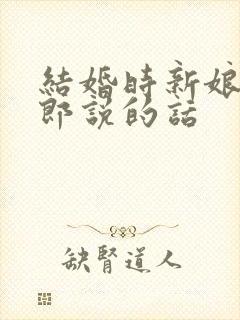 結婚時新娘
郎說的話
缺腎道人